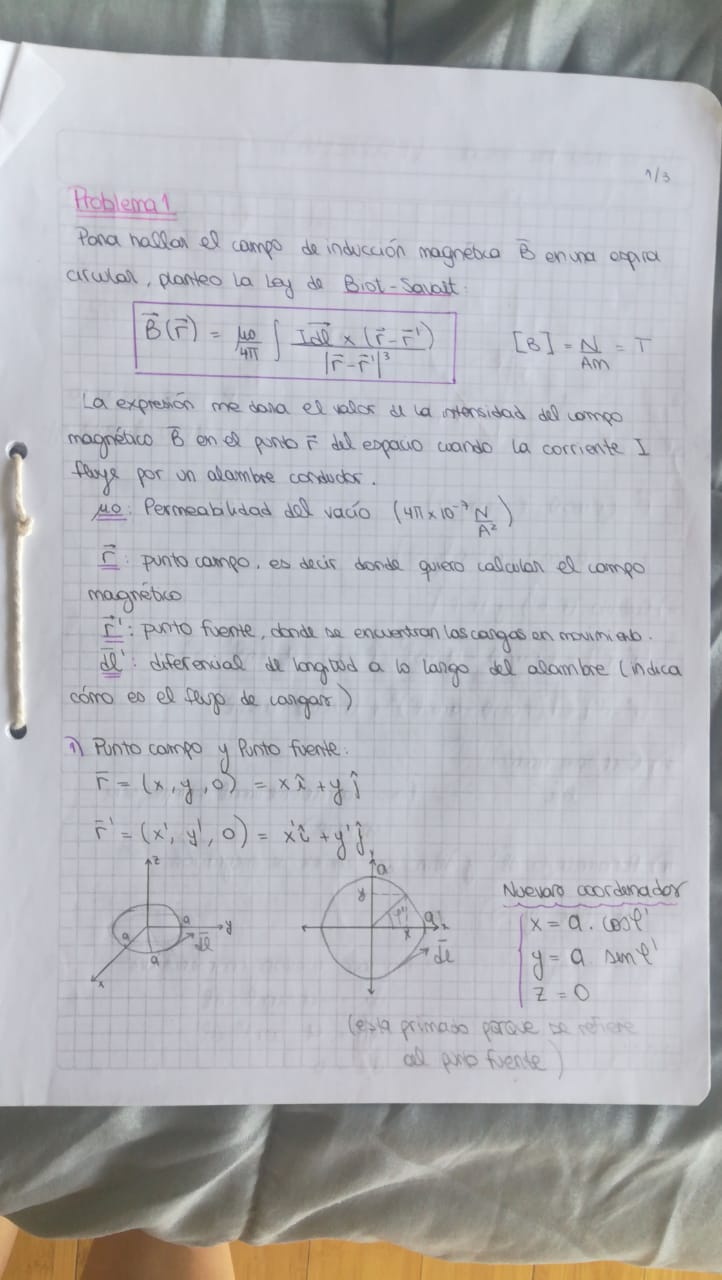 1/3
Problema 1
Para hallar el campo de inducción magnética B⃗ en una espira
circular, planteo la Ley de Biot-Savart:
B⃗(r⃗) = μo/4π ∫ Idl⃗ × (r⃗ - r⃗')/|r⃗ - r⃗'|³ [B] = N/Am = T
La expresión me dara el valor de la intensidad del campo
magnético B⃗ en el punto r⃗ del espacio cuando la corriente I
fluye por un alambre conductor.
μo: Permeabilidad del vacío (4π×10⁻⁷ N/A²)
r⃗: punto campo, es decir donde quiero calcular el campo
magnético
r⃗': punto fuente, donde se encuentran las cargas en movimiento.
dl⃗': diferencial de longitud a lo largo del alambre (indica
cómo es el flujo de cargas)
1) Punto campo y Punto fuente.
r̄ = (x, y, 0) = xî + yĵ
r̄' = (x', y', 0) = x'î + y'ĵ
z
a
y
a
a
x
dl
a
y
φ'
x
a
x
dl
Nuevas coordenadas
x = a. cosφ'
y = a senφ'
z = 0
(esta primado porque se refiere
al punto fuente)